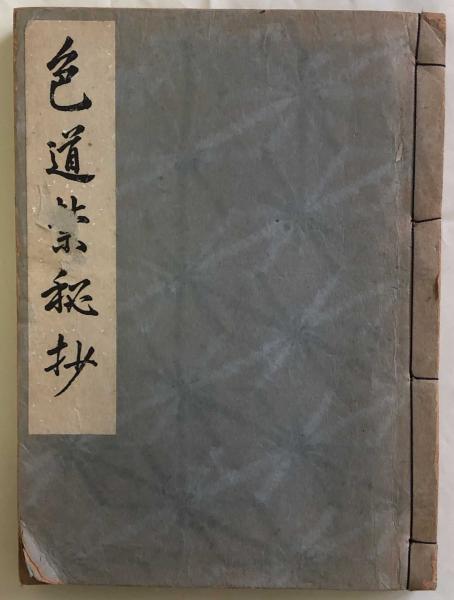 色道禁秘抄